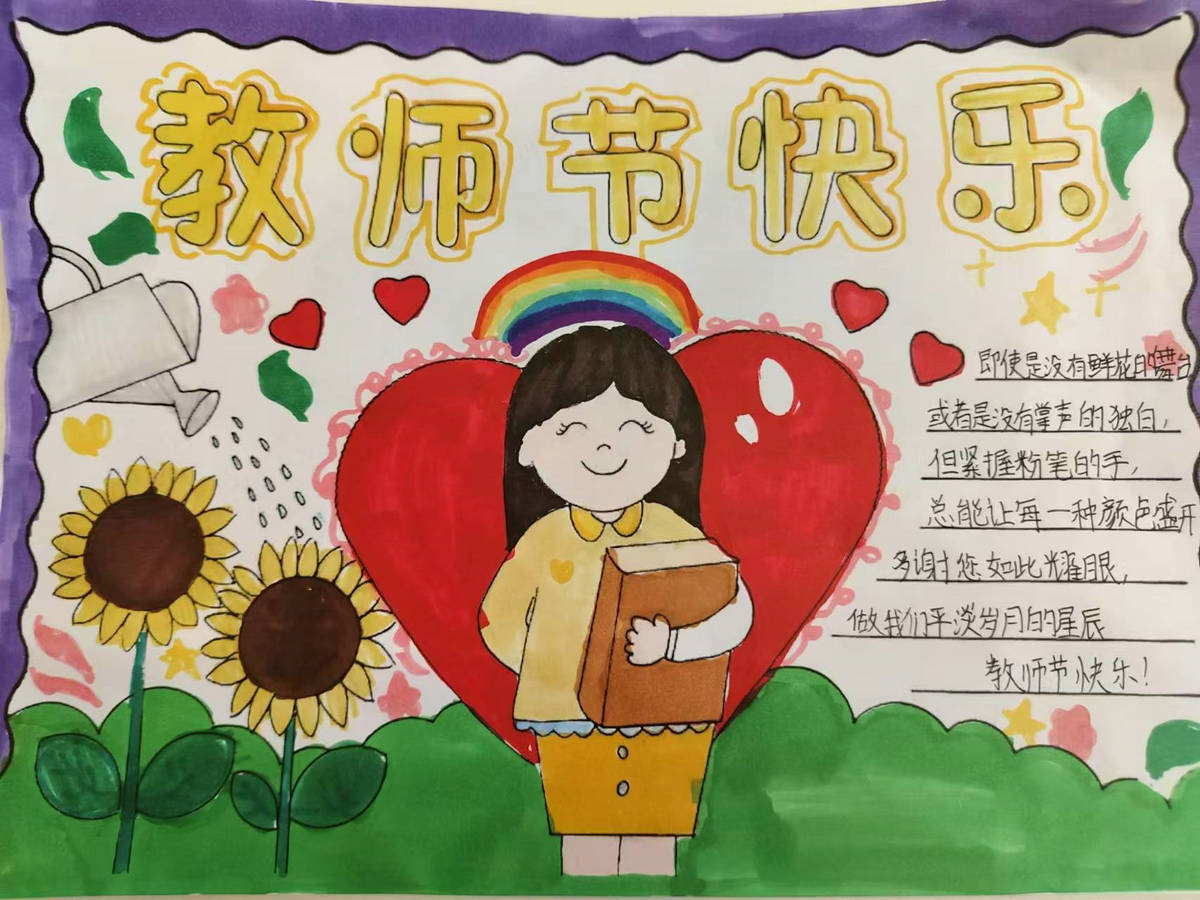 教师节快乐
即使是没有鲜花的舞台
或者是没有掌声的独白，
但紧握粉笔的手，
总能让每一种颜色盛开
多谢您如此耀眼，
做我们平淡岁月的星辰
教师节快乐！